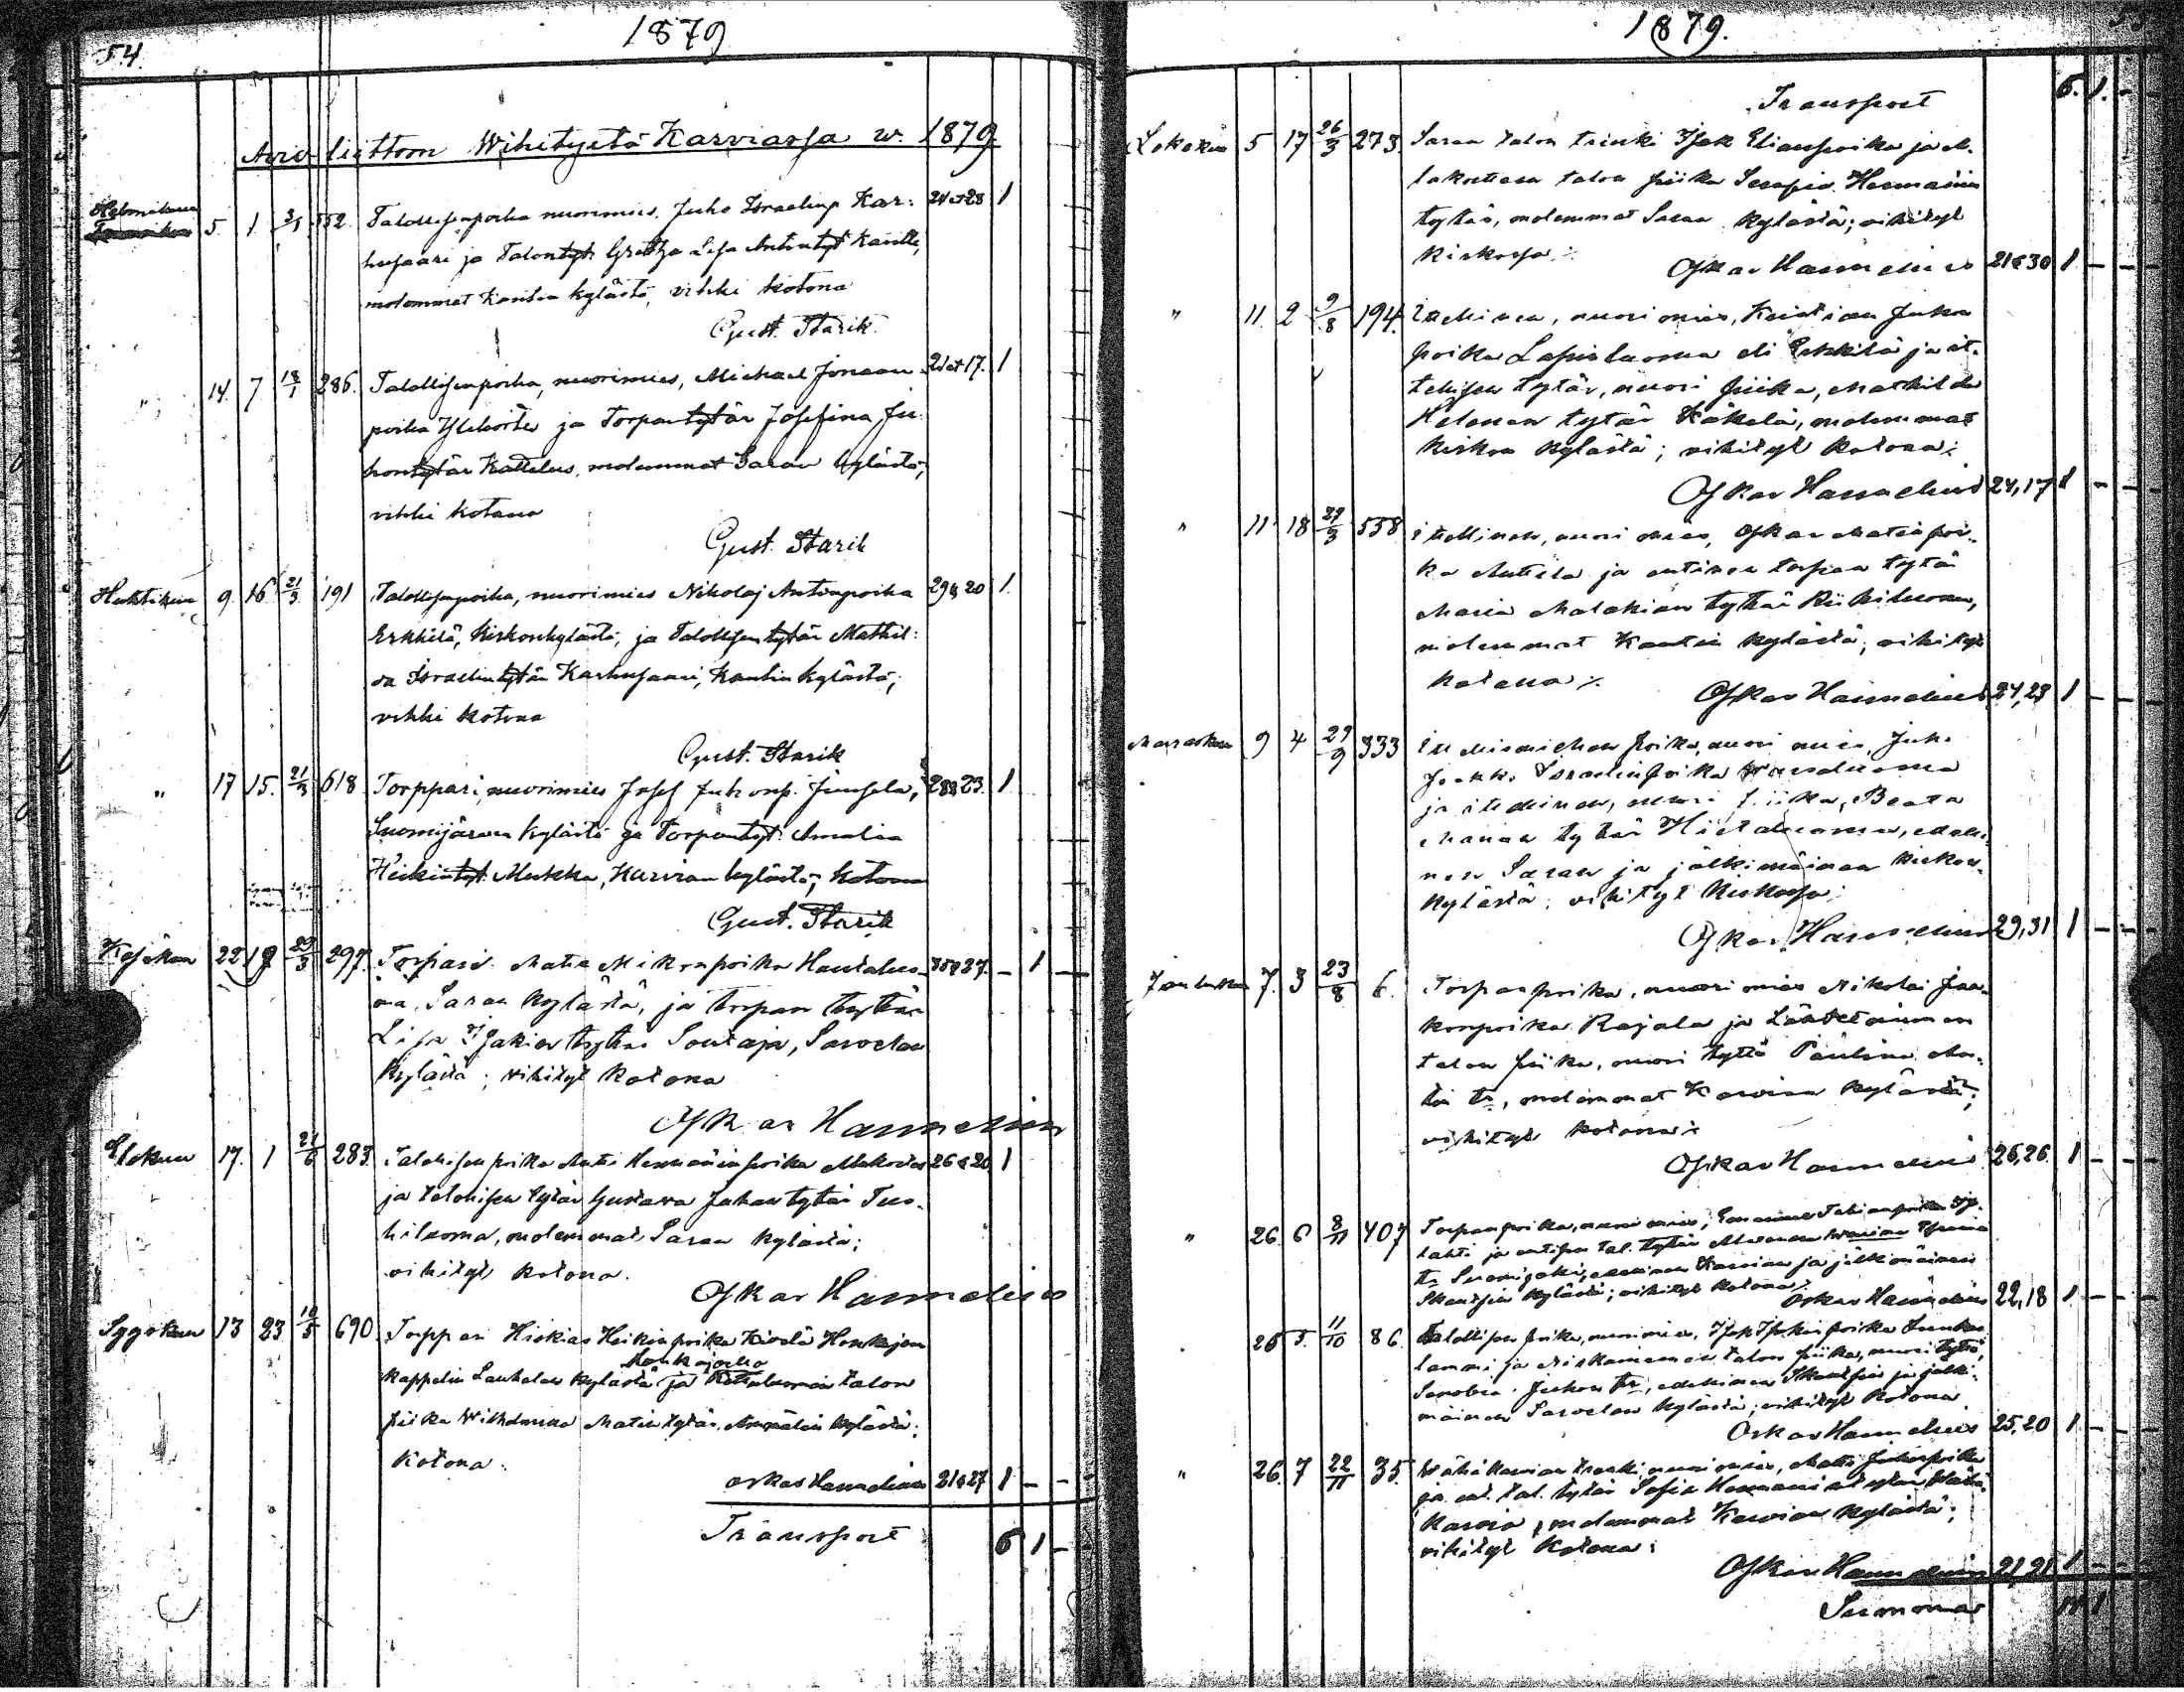 54.
1879
Avioliittoon Wihityetä Karviassa w. 1879
Helmikuu 5. 1 552. Talollisenpoika nuorimies, Juho Israelinp. Kar- 24 et 28 1
husaari ja Talontyt.
molemmat Kantin kylästä, vihki kotona
Gust. Starik.
" 14. 7 18/1 286. Talollisenpoika, nuorimies, Michael Jonaan 21 et 17. 1
poika ja Torpantytär Josefina Ju-
hontytär Kattelus, molemmat Saran kylästä,
vihki kotona
Gust. Starik
Huhtikuu 9. 16 21/3 191 Talollisenpoika, nuorimies Nikolaj Antinpoika 29 & 20 1.
Erkkilä, Kirkonkylästä, ja Talollisen tytär Mathil-
da Israelintytär Karhusaari, Kantin kylästä,
vihki kotona
Gust. Starik
" 17 15. 21/3 618 Torppari, nuorimies Josef Juhonp. Juusela, 28 & 23. 1
Suomijärven kylästä ja Torpantyt. Amalia
Heikintyt. Mukka, Karvian kylästä, kotona
Gust. Starik
Kesäkuu 22 19 29/3 297. Torpari Matts Mikonpoika Hautaluo- 35 & 27. - 1 -
ma, Saran kylästä, ja torpan tytär
Lisa Isakin tytär Soutaja, Sarvelan
kylästä; vihityt kotona
Oskar Hannelius
Elokuu 17. 1 21/6 283. Talolisen poika Antti Hermanin poika 26 & 20 1
ja talolisen tytär Gustava Juhan tytär Tuo-
hiluoma, molemmat Saran kylästä;
vihityt kotona.
Oskar Hannelius
Syyskuu 13 23 10/5 690 Torppari Hiskias Heikinpoika Honkajoen
Honkajoelta
kappelin Lauhalan kylästä ja talon
piika Wilhelmina Matin tytär, kylästä;
kotona.
Oskar Hannelius 21 & 27 1 - -
Transport 6 1 -
1879.
Transport 6. 1. - -
Lokakuu 5 17 26/3 273. Saran talon trenki Isak Elianpoika ja A-
lakortesen talon piika Serafia Hermanin
tytär, molemmat Saran kylästä; vihityt
kirkossa.
Oskar Hannelius 21 & 30 1 - -
" 11. 2 9/8 194. Itsellinen, nuori mies, Kristian Juhan
poika Lapinluoma eli Erkkilä ja it-
tellisen tytär, nuori piika, Mathilda
Helenan tytär Käkelä, molemmat
kirkon kylästä; vihityt kotona.
Oskar Hannelius 24, 17 1 - -
" 11 18 27/3 558 itsellinen, nuori mies, Oskar Matinpoi-
ka Anttila ja entinen torpan tytär
Maria Malakian tytär Riihiluoma,
molemmat Kantin kylästä; vihityt
kotona.
Oskar Hannelius 24, 23 1 - -
Marraskuu 9 4 29/9 333 Itsellismiehen poika, nuori mies, Juho
Jaakko Israelinpoika
ja itsellinen, nuori piika, Beata
Mananen tytär Hietaluoma, edelli-
nen Saran ja jälkimäinen kirkon-
kylästä; vihityt kirkossa.
Oskar Hannelius 29, 31 1 - -
Joulukuu 7. 3 23/8 6. Torpanpoika, nuori mies Nikolai Jaa-
konpoika Rajala ja
talon piika, nuori tyttö Paulina An-
tin tr, molemmat Karvian kylästä;
vihityt kotona.
Oskar Hannelius 26, 26. 1 - -
" 26. 6 8/11 407 Torpanpoika, nuori mies,
lahti ja entisen tal. tytär
tr Suomijoki, edellinen Karvian ja jälkimäinen
Skantsin kylästä; vihityt kotona.
Oskar Hannelius 22, 18 1 - -
26 5. 11/10 86. Talollisen poika, nuori mies, Isak Isakinpoika
lammi ja Niskaniemen talon piika, nuori tyttö,
Senobia Juhon tr, edellinen Skantsin ja jälki-
mäinen Sarvelan kylästä; vihityt kotona
Oskar Hannelius 25, 20 1 - -
" 26. 7 22/11 35. Wähäkarvian trenki, nuori mies, Matts Juhonpoika
ja ent. tal. tytär Sofia Hermanin tytär
Karvia, molemmat Karvian kylästä;
vihityt kotona.
Oskar Hannelius 21, 21 1 - -
Summa 14 1